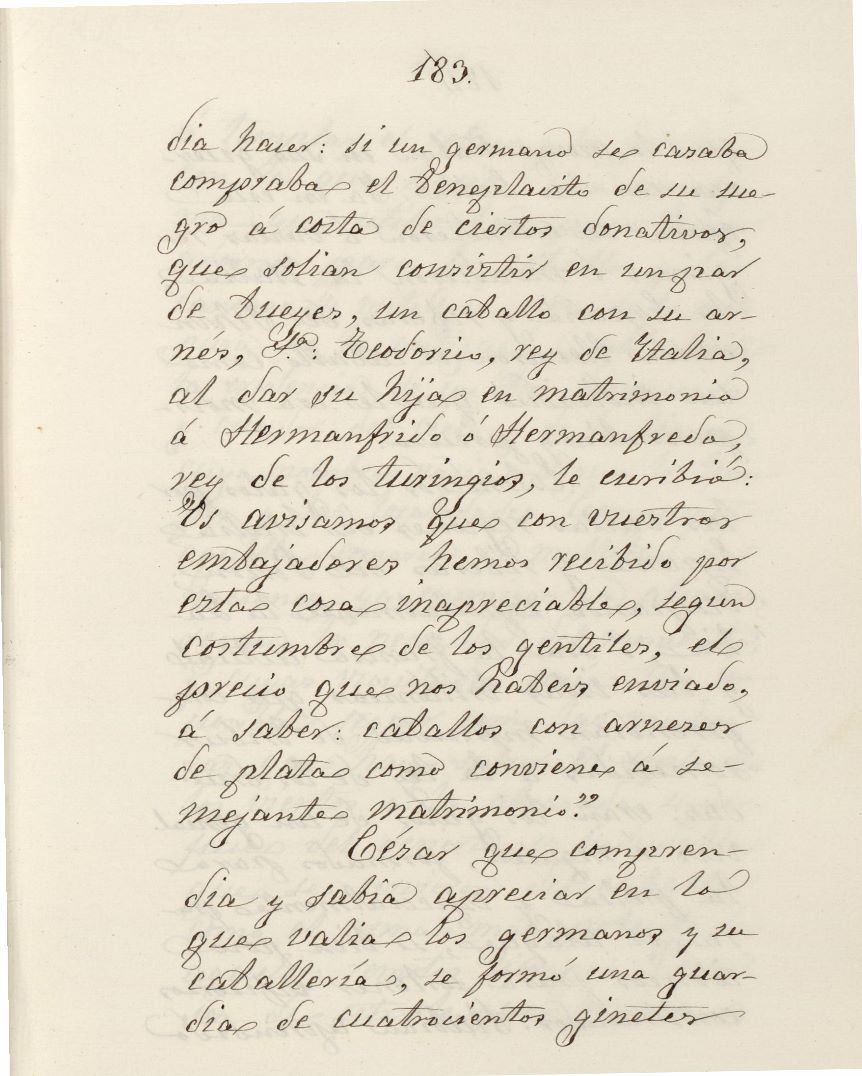 183.
dia hacer: si un germano se casaba
compraba el beneplacito de su sue-
gro á costa de ciertos donativos,
que solian consistir en un par
de bueyes, un caballo con su ar-
nés, Teodorico, rey de Italia,
al dar su hija en matrimonio
á Hermanfrido ó Hermanfredo,
rey de los turingios, le escribió:
"Os avisamos que con vuestros
embajadores hemos recibido por
esta cosa inapreciable, segun
costumbre de los gentiles, el
precio que nos habeis enviado,
á saber: caballos con arneses
de plata como conviene á se-
mejante matrimonio."
César que compren-
dia y sabia apreciar en lo
que valia los germanos y su
caballería, se formó una guar-
dia de cuatrocientos ginetes